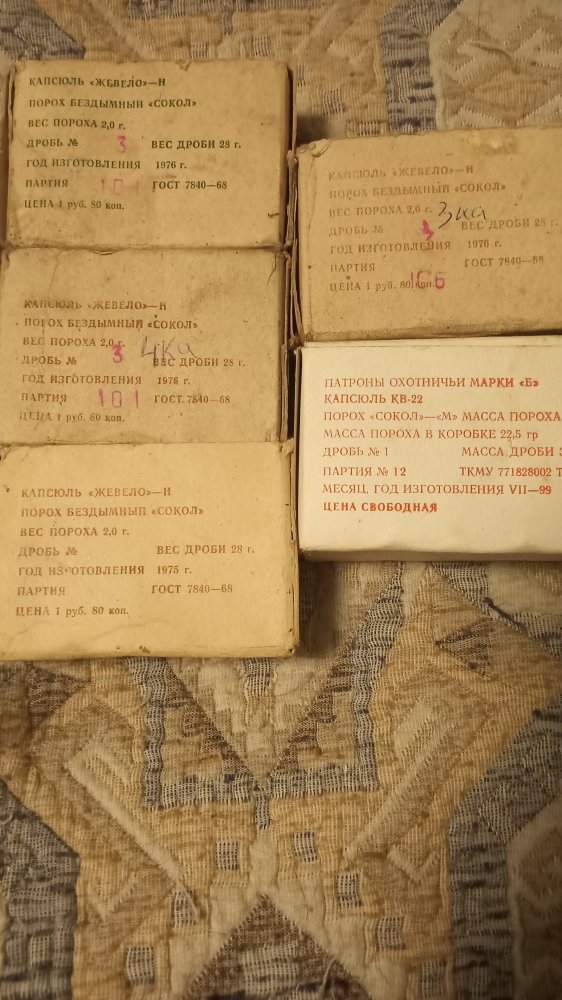 КАПСЮЛЬ «ЖЕВЕЛО»—Н
ПОРОХ БЕЗДЫМНЫЙ «СОКОЛ»
ВЕС ПОРОХА 2,0 г.
ДРОБЬ № 3 ВЕС ДРОБИ 28 г.
ГОД ИЗГОТОВЛЕНИЯ 1976 г.
ПАРТИЯ 101 ГОСТ 7840—68
ЦЕНА 1 руб. 80 коп.
КАПСЮЛЬ «ЖЕВЕЛО»—Н
ПОРОХ БЕЗДЫМНЫЙ «СОКОЛ»
ВЕС ПОРОХА 2,0 г. 3ка
ДРОБЬ № ВЕС ДРОБИ 28 г.
ГОД ИЗГОТОВЛЕНИЯ 1976 г.
ПАРТИЯ ГОСТ 7840—68
ЦЕНА 1 руб. 80 коп. 106
КАПСЮЛЬ «ЖЕВЕЛО»—Н
ПОРОХ БЕЗДЫМНЫЙ «СОКОЛ»
ВЕС ПОРОХА 2,0 г. 4ка
ДРОБЬ № 3 ВЕС ДРОБИ 28 г.
ГОД ИЗГОТОВЛЕНИЯ 1976 г.
ПАРТИЯ 101 ГОСТ 7840—68
ЦЕНА 1 руб. 80 коп.
ПАТРОНЫ ОХОТНИЧЬИ МАРКИ «Б»
КАПСЮЛЬ КВ-22
ПОРОХ «СОКОЛ»—«М» МАССА ПОРОХА
МАССА ПОРОХА В КОРОБКЕ 22,5 гр
ДРОБЬ № 1 МАССА ДРОБИ 3
ПАРТИЯ № 12 ТКМУ 771828002 Т
МЕСЯЦ, ГОД ИЗГОТОВЛЕНИЯ VII—99
ЦЕНА СВОБОДНАЯ
КАПСЮЛЬ «ЖЕВЕЛО»—Н
ПОРОХ БЕЗДЫМНЫЙ «СОКОЛ»
ВЕС ПОРОХА 2,0 г.
ДРОБЬ № ВЕС ДРОБИ 28 г.
ГОД ИЗГОТОВЛЕНИЯ 1975 г.
ПАРТИЯ ГОСТ 7840—68
ЦЕНА 1 руб. 80 коп.